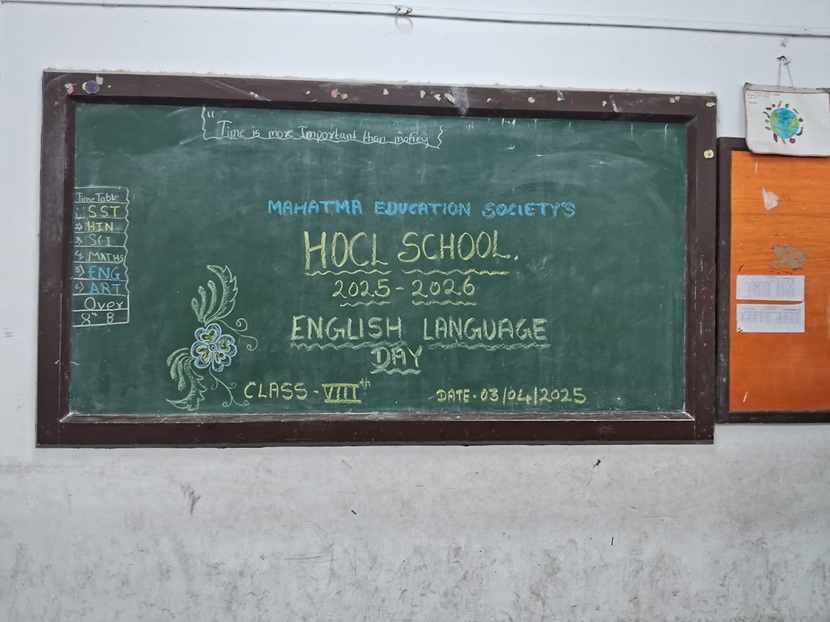 "Time is more Important than money
Time Table
1) SST
2) HIN
3) SCI
4) MATHS
5) ENG
6) ART
Over
8th B
MAHATMA EDUCATION SOCIETY'S
HOCL SCHOOL.
2025-2026
ENGLISH LANGUAGE
DAY
CLASS-VIIIth
DATE-03/04/2025